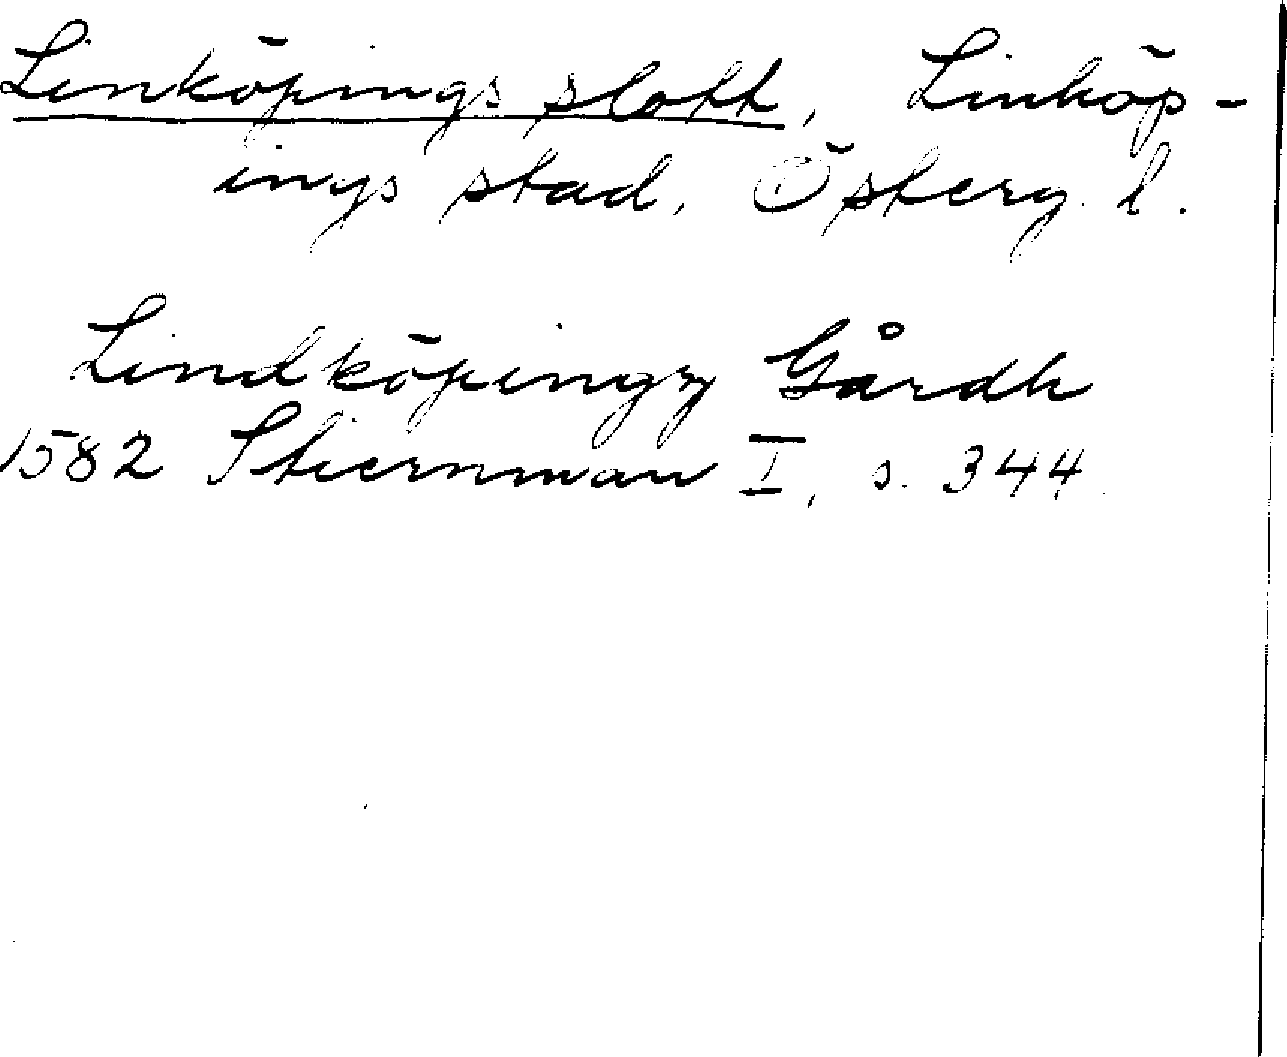 Linköpings slott, Linköp-
ings stad, Österg. l.
Lindköpingz Gårdh
1582 Stiernman I, s. 344.